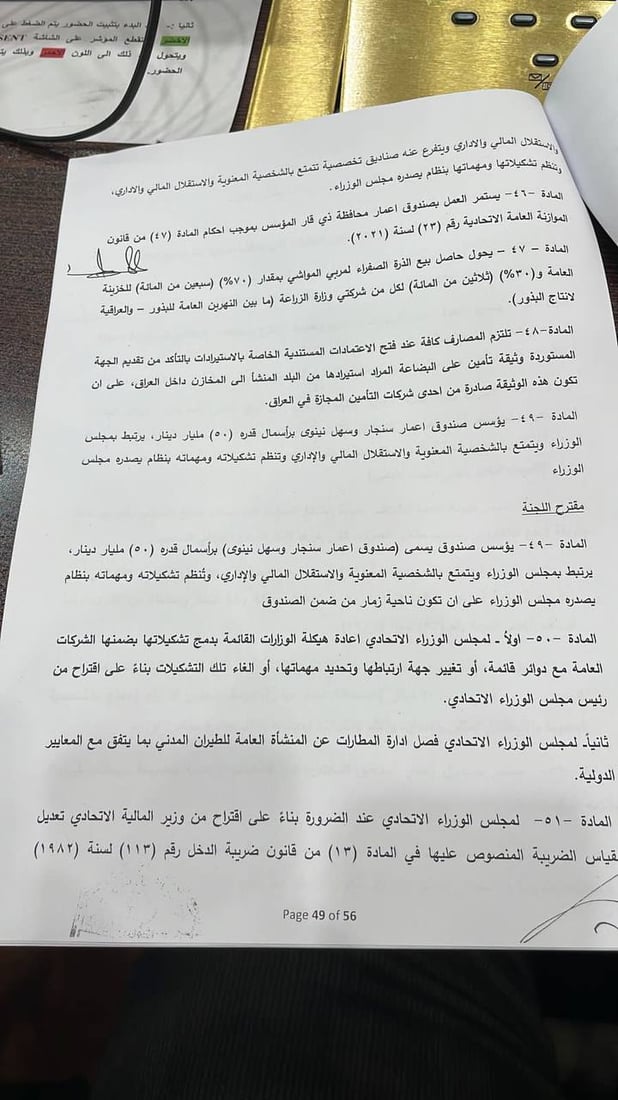 ثانيا :- البدء بتثبيت الحضور يتم الضغط على
الاخضر تقطع المؤشر على الشاشة SENT
ويتحول ذلك الى اللون الاحمر وبذلك يتم
الحضور.
والاستقلال المالي والاداري ويتفرع عنه صناديق تخصصية تتمتع بالشخصية المعنوية والاستقلال المالي والاداري،
وتنظم تشكيلاتها ومهماتها بنظام يصدره مجلس الوزراء.
المادة -٤٦- يستمر العمل بصندوق اعمار محافظة ذي قار المؤسس بموجب احكام المادة (٤٧) من قانون
الموازنة العامة الاتحادية رقم (٢٣) لسنة (٢٠٢١).
المادة - ٤٧ - يحول حاصل بيع الذرة الصفراء لمربي المواشي بمقدار (٧٠%) (سبعين من المائة) للخزينة
العامة و(٣٠%) (ثلاثين من المائة) لكل من شركتي وزارة الزراعة (ما بين النهرين العامة للبذور – والعراقية
لانتاج البذور).
المادة-٤٨- تلتزم المصارف كافة عند فتح الاعتمادات المستندية الخاصة بالاستيرادات بالتأكد من تقديم الجهة
المستوردة وثيقة تأمين على البضاعة المراد استيرادها من البلد المنشأ الى المخازن داخل العراق، على ان
تكون هذه الوثيقة صادرة من احدى شركات التأمين المجازة في العراق.
المادة -٤٩- يؤسس صندوق اعمار سنجار وسهل نينوى برأسمال قدره (٥٠) مليار دينار، يرتبط بمجلس
الوزراء ويتمتع بالشخصية المعنوية والاستقلال المالي والإداري وتنظم تشكيلاته ومهماته بنظام يصدره مجلس
الوزراء
مقترح اللجنة
المادة -٤٩- يؤسس صندوق يسمى (صندوق اعمار سنجار وسهل نينوى) برأسمال قدره (٥٠) مليار دينار،
يرتبط بمجلس الوزراء ويتمتع بالشخصية المعنوية والاستقلال المالي والإداري، وتُنظم تشكيلاته ومهماته بنظام
يصدره مجلس الوزراء على ان تكون ناحية زمار من ضمن الصندوق
المادة -٥٠- اولاً ـ لمجلس الوزراء الاتحادي اعادة هيكلة الوزارات القائمة بدمج تشكيلاتها بضمنها الشركات
العامة مع دوائر قائمة، أو تغيير جهة ارتباطها وتحديد مهماتها، أو الغاء تلك التشكيلات بناءً على اقتراح من
رئيس مجلس الوزراء الاتحادي.
ثانياً۔ لمجلس الوزراء الاتحادي فصل ادارة المطارات عن المنشأة العامة للطيران المدني بما يتفق مع المعايير
الدولية.
المادة -٥١- لمجلس الوزراء الاتحادي عند الضرورة بناءً على اقتراح من وزير المالية الاتحادي تعديل
مقياس الضريبة المنصوص عليها في المادة (١٣) من قانون ضريبة الدخل رقم (١١٣) لسنة (١٩٨٢)
Page 49 of 56